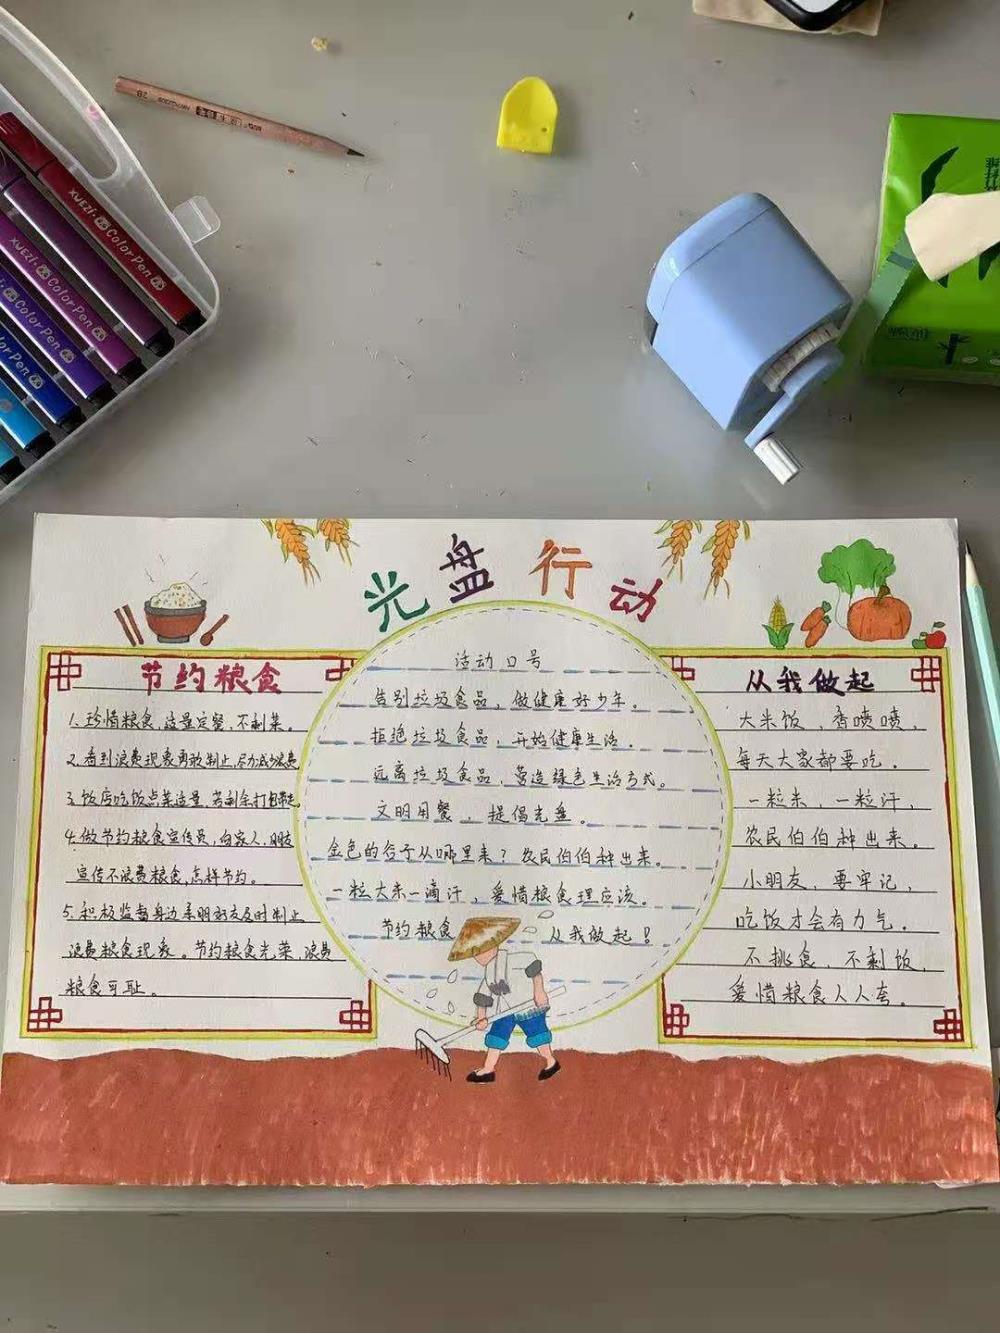 XUEZI. Color Pen
XUEZI. Color Pen
Color Pen
Color Pen
2B
光盘行动
节约粮食
1.珍惜粮食,适量定餐,不剩菜。
2.看到浪费现象勇敢制止,尽力减少浪费
3.饭店吃饭点菜适量,若剩余打包带走。
4.做节约粮食宣传员,向家人、朋友
宣传不浪费粮食,怎样节约。
5.积极监督身边亲朋好友及时制止
浪费粮食现象。节约粮食光荣,浪费
粮食可耻。
活动口号
告别垃圾食品,做健康好少年。
拒绝垃圾食品,开始健康生活。
远离垃圾食品,营造绿色生活方式。
文明用餐,提倡光盘。
金色的谷子从哪里来?农民伯伯种出来。
一粒大米一滴汗,爱惜粮食理应该。
节约粮食 从我做起!
从我做起
大米饭 香喷喷,
每天大家都要吃。
一粒米,一粒汗,
农民伯伯种出来。
小朋友,要牢记,
吃饭才会有力气。
不挑食,不剩饭,
爱惜粮食人人夸。